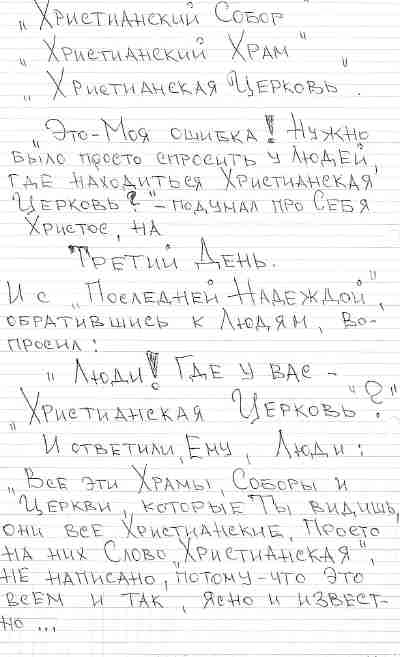 „Христианский Собор"
„Христианский Храм"
„Христианская Церковь".
„Это-Моя ошибка! Нужно
было просто спросить у Людей,
где находиться Христианская
Церковь?"-подумал про Себя
Христос, на
Третий День.
И с „Последней Надеждой",
обратившись к Людям, во-
просил:
„Люди! Где у вас -
„Христианская Церковь"?"
И ответили, Ему, Люди:
„Все эти Храмы, Соборы и
Церкви, которые Ты видишь,
они все Христианские, Просто
на них Слово „Христианская",
не написано, потому-что это
всем и так, ясно и извест-
но...